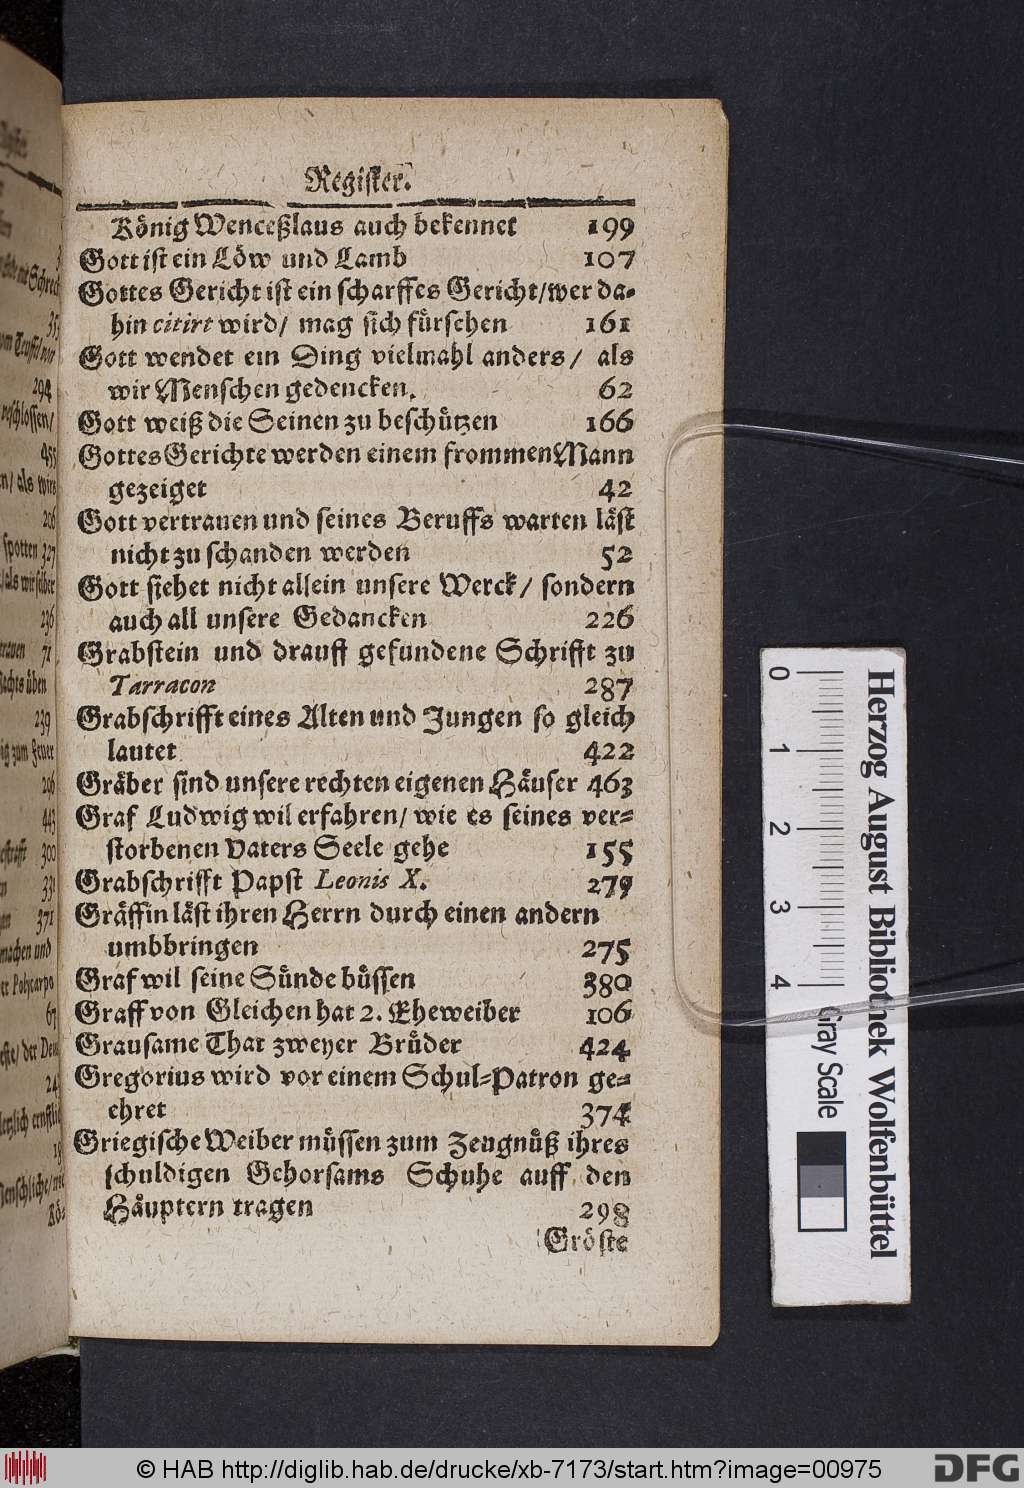 Register.
König Wenceßlaus auch bekennet 199
Gott ist ein Löw und Lamb 107
Gottes Gericht ist ein scharffes Gericht/wer da-
hin citirt wird/ mag sich fürsehen 161
Gott wendet ein Ding vielmahl anders/ als
wir Menschen gedencken. 62
Gott weiß die Seinen zu beschützen 166
Gottes Gerichte werden einem frommen Mann
gezeiget 42
Gott vertrauen und seines Beruffs warten läst
nicht zu schanden werden 52
Gott siehet nicht allein unsere Werck/ sondern
auch all unsere Gedancken 226
Grabstein und drauff gefundene Schrifft zu
Tarracon 287
Grabschrifft eines Alten und Jungen so gleich
lautet 422
Gräber sind unsere rechten eigenen Häuser 463
Graf Ludwig wil erfahren/ wie es seines ver-
storbenen Vaters Seele gehe 155
Grabschrifft Papst Leonis X. 279
Gräffin läst ihren Herrn durch einen andern
umbbringen 275
Graf wil seine Sünde büssen 380
Graff von Gleichen hat 2. Eheweiber 106
Grausame That zweyer Brüder 424
Gregorius wird vor einem Schul-Patron ge-
ehret 374
Griegische Weiber müssen zum Zeugnüß ihres
schuldigen Gehorsams Schuhe auff den
Häuptern tragen 298
Gröste
294
455
/ als wirs
206
spotten 327
/als wir selber
236
71
239
zum Feuer
206
443
300
371
machen und
Polycarpo
67
/ der
Kö-
0 1 2 3 4
Gray Scale
Herzog August Bibliothek Wolfenbüttel
© HAB http://diglib.hab.de/drucke/xb-7173/start.htm?image=00975
DFG